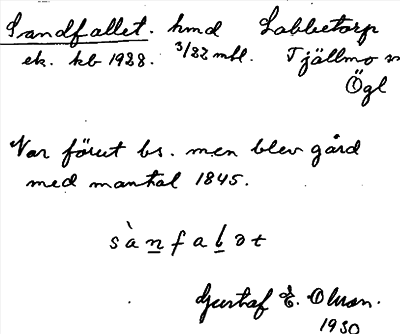 Sandfallet. hmd Labbetorp
ek. kb 1928. 3/32 mtl. Tjällmo sn
Ögl
Var förut bs. men blev gård
med mantal 1845.
sànfalət
Gustaf E. Olson.
1930